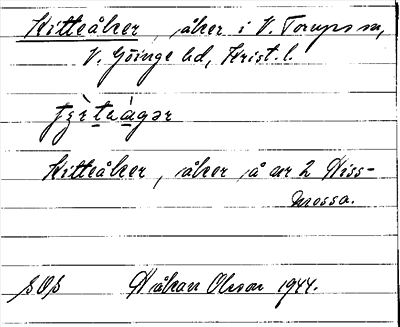 Kitteåker, åker i V. Torups sn,
V. Göinge hd, Krist. l.
Kitteåker, åker å nr 2 Hiss-
mossa.
Håkan Olsson 1944.